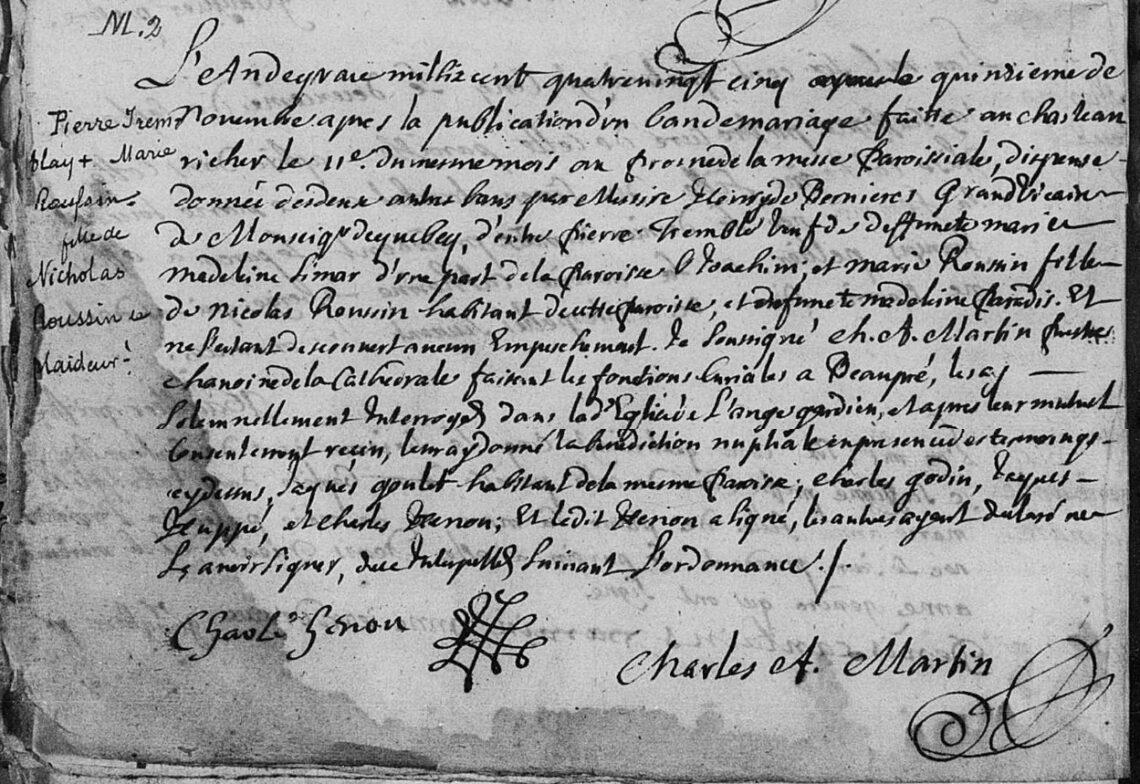 M. 2
L'an de grace mil six cent quatrevingt cinq le quinzieme de
Pierre Trem
blay + Marie
Roussin
fille de
Nicholas
Roussin &
Novembre apres la publication d'un ban de mariage faitte au chasteau
richer le 11e. du mesme mois au prosne de la messe Paroissiale, dispense
donnée des deux autres bans par Messire Henry de Bernieres Grand Vicaire
de Monseigr de quebeq, d'entre pierre Tremblé veuf de deffuncte marie
madeleine simar d'une part de la Paroisse St Joachim; et marie Roussin fille
de Nicolas Roussin habitant de cette Paroisse, et defuncte madeleine Paradis. Et
ne s'estant descouvert aucun Empeschement. Je soussigné Ch. A. Martin prestre
chanoine de la Cathedrale faisant les fonctions Curiales a Beaupré, les ay
solemnellement Interrogés dans la de Eglise de L'ange gardien, et apres leur mutuel
Consentement receu, leur ay donné la benediction nuptiale en presence des temoings
cy dessus, Jaques goulet habitant de la mesme Paroisse; Charles godin, Jaques
Huppé, et Charles Henon; Et ledit Henon a signé, les autres ayent declaré ne
sçavoir signer, de ce Interpellés suivant L'ordonnance ./.
Charle henon
Charles A. Martin